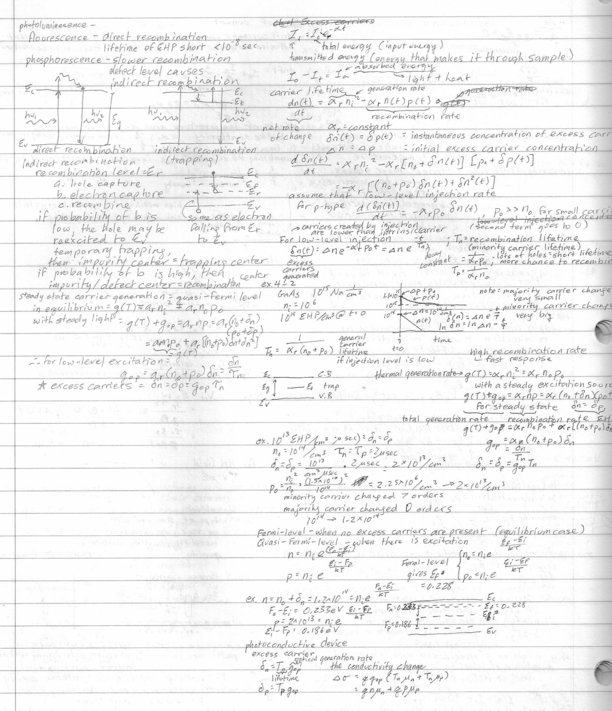 photoluminescence -
flourescence - direct recombination
lifetime of EHP short < 10⁻⁸ sec.
phosphorescence - slower recombination
defect level causes
indirect recombination
Ec
Ev
hν₁
hν₂
Eg
direct recombination
Ec
Et
Er
Ev
hν₁
hν₂
indirect recombination
(trapping)
Indirect recombination
recombination level = Er
a. hole capture
b. electron capture
c. recombine
Ec
Er
Ev
same as electron
falling from Er
to Ev
if probability of b is
low, the hole may be
reexcited to Ev
temporary trapping,
then impurity center = trapping center
if probability of b is high, then
impurity/defect center = recombination center
steady state carrier generation = quasi-fermi level
in equilibrium = g(T) = αr ni² = αr n₀p₀
with steady light = g(T) + gop = αr np = αr(n₀+δn)(p₀+δp)
= αr n₀p₀ + αr[(n₀+p₀)δn + δn²]
g(T)
∴ for low-level excitation:
gop = αr(n₀+p₀)δn = δn/τn
* excess carriers = δn = δp = gop τn
ch.4 Excess carriers
total energy (input energy)
transmitted energy (energy that makes it through sample)
absorbed energy
light + heat
carrier lifetime
generation rate
generation rate
dn(t)/dt = αr ni² - αr n(t)p(t)
recombination rate
net rate of change
αr = constant
δn(t) = δp(t) = instantaneous concentration of excess carr
Δn = Δp = initial excess carrier concentration
d δn(t)/dt = αr ni² - αr[n₀+δn(t)][p₀+δp(t)]
= -αr[(n₀+p₀)δn(t) + δn²(t)]
assume that low-level injection rate
for p-type d(δn(t))/dt = -αr p₀ δn(t)
p₀ >> n₀ for small carri
(second term goes to 0)
carriers created by injection
are lower than intrinsic carrier
For low-level injection
δn(t) = Δn e^(-αr p₀ t) = Δn e^(-t/τn)
excess carriers generated
τn = recombination lifetime
(minority carrier lifetime)
lots of holes = short lifetime
more chance to recombin
ex. 4-2
GaAs 10¹⁵ Na 1/cm³
ni = 10⁶
10¹⁴ EHP/cm³ @ t=0
τn = 1/(αr(n₀+p₀))
general carrier lifetime
if injection level is low
Δp + p₀
p(t)
n(t)
time
t=0
note: majority carrier change
very small
minority carrier change
very big
ln δn = ln Δn - t/τ
high recombination rate
= fast response
Ec C.B
Eg E₀ trap
V.B
Ev
thermal generation rate → g(T) = αr ni² = αr n₀p₀
with a steady excitation sou
g(T) + gop = αr np = αr(n₀+δn)(p₀+
for steady state δn = δp
total generation rate
recombination rate EH
g(T) + gop = αr n₀p₀ + αr[(n₀+p₀)δn
gop = αr(n₀+p₀)δn
= δn/τn
δn = δp = gop τn
ex. 10¹³ EHP/cm³
n₀ = 10¹⁴/cm³ τn = τp = 2μsec
δn = δp = 10¹³/cm³μsec · 2μsec · 2×10¹³/cm³
p₀ = ni²/n₀ = (1.5×10¹⁰)²/10¹⁴ = 2.25×10⁶/cm³ → 2×10¹³/cm³
minority carrier changed 7 orders
majority carrier changed 0 orders
10¹⁴ → 1.2×10¹⁴
Fermi-level - when no excess carriers are present (equilibrium case)
Quasi-Fermi-level - when there is excitation
n = ni e^((Fn-Ei)/kT)
p = ni e^((Ei-Fp)/kT)
Fermi-level gives EF
n₀ = ni e^((EF-Ei)/kT)
p₀ = ni e^((Ei-EF)/kT)
= 0.228
ex. n = n₀ + δn = 1.2×10¹⁴ = ni e^((Fn-Ei)/kT)
Fn - Ei = 0.233eV
p = 2×10¹³ = ni e^((Ei-Fp)/kT)
Ei - Fp = 0.186eV
Ec
Fn = 0.233
EF = 0.228
Ei
Fp = 0.186
Ev
photoconductive device
excess carrier
optical generation rate
δn = τn gop
lifetime
δp = τp gop
the conductivity change
Δσ = q gop (τn μn + τp μp)
= q n μn + q p μp